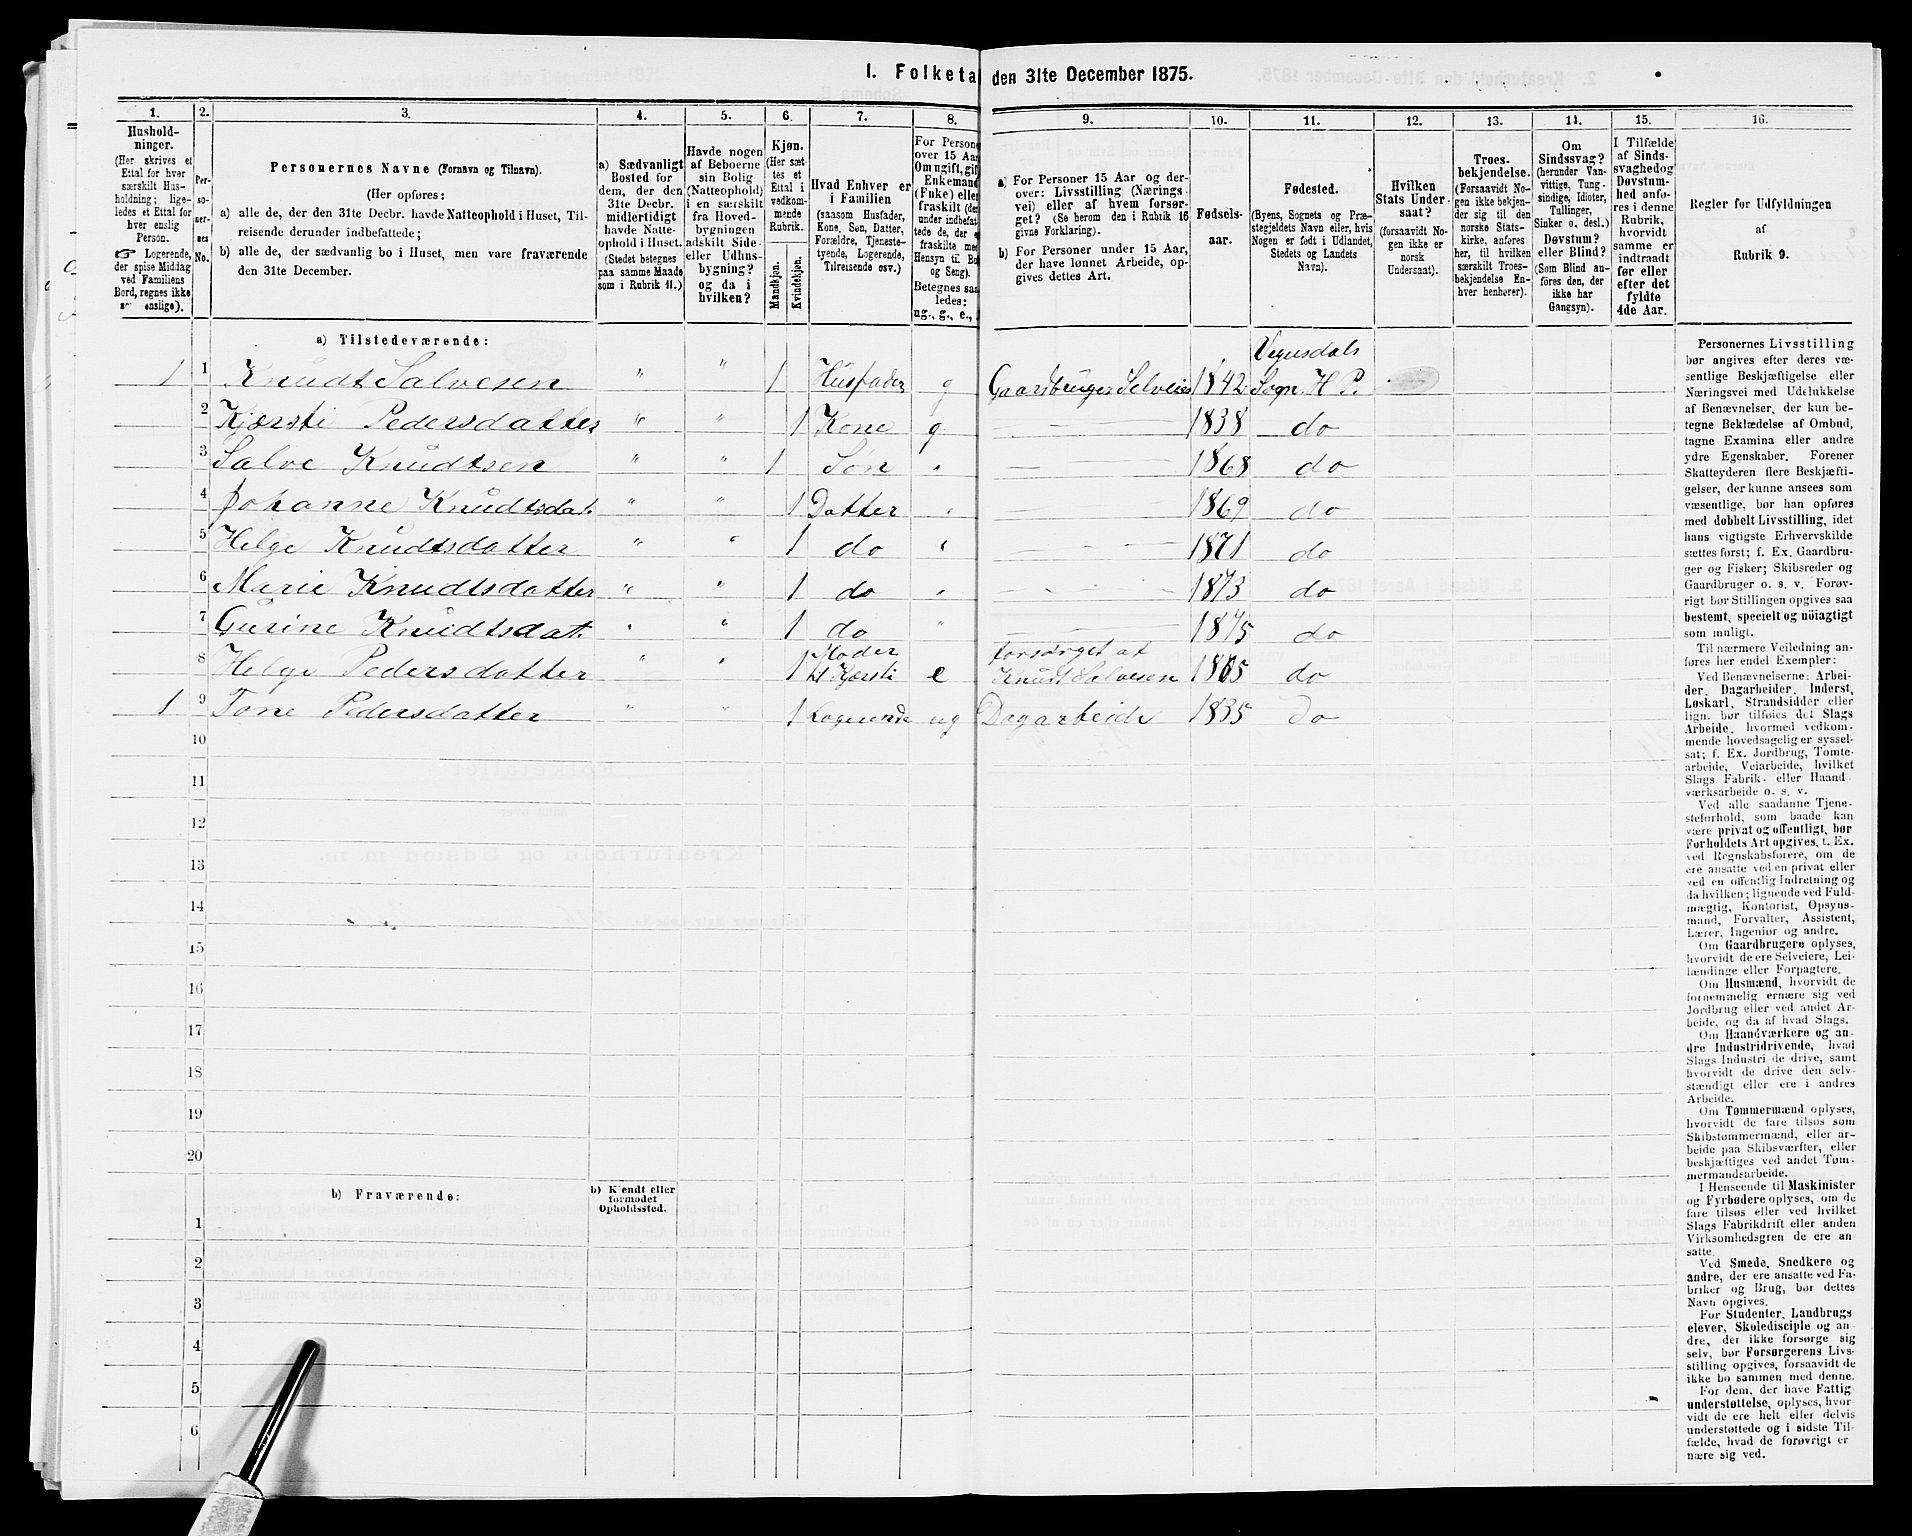 1. Folketa den 31te December 1875.
1. 2. 3. 4. 5. 6. 7. 8. 9. 10. 11. 12. 13. 14. 15. 16.
Hushold-
ninger.
(Her skrives et
Ettal for hver
særskilt Hus-
holdning; lige-
ledes et Ettal for
hver enslig
Person.
☞ Logerende,
der spise Middag
ved Familiens
Bord, regnes ikke
enslige).
Per-
so-
ner-
nes
No.
Personernes Navne (Fornavn og Tilnavn).
(Her opføres:
a) alle de, der den 31te Decbr. havde Natteophold i Huset, Til-
reisende derunder indbefattede;
b) alle de, der sædvanlig bo i Huset, men vare fraværende
den 31te December.
a) Sædvanligt
Bosted for
dem, der den
31te Decbr.
midlertidigt
havde Natte-
ophold i Huset.
(Stedet betegnes
paa samme Maade
som i Rubrik 11.)
Havde nogen
af Beboerne
sin Bolig
(Natteophold)
i en særskilt
fra Hoved-
bygningen
adskilt Side-
eller Udhus-
bygning?
og da i
hvilken?
Kjøn.
(Her sæt-
tes et
Ettal i
vedkom-
mende
Rubrik.
Mandkjøn.
Kvindekjøn.
Hvad Enhver er
i Familien
(saasom Husfader,
Kone, Søn, Datter,
Forældre, Tjeneste-
tyende, Logerende,
Tilreisende osv.)
For Persone
over 15 Aar
Om ugift, gif
Enkemand
(Enke) eller
fraskilt (de
under indbefat
tede de, der e
fraskilte med
Hensyn til Bo
og Seng).
Betegnes saa
ledes:
ug., g., e.,
a) For Personer 15 Aar og der-
over: Livsstilling (Nærings-
vei) eller af hvem forsør-
get? (Se herom den i Rubrik 16
givne Forklaring).
b) For Personer under 15 Aar,
der have lønnet Arbeide, op-
gives dettes Art.
Fødsels-
aar.
Fødested.
(Byens, Sognets og Præ-
stegjeldets Navn eller, hvis
Nogen er født i Udlandet,
Stedets og Landets
Navn).
Hvilken
Stats Under-
saat?
(forsaavidt No-
gen ikke er
norsk
Undersaat).
Troes-
bekjendelse.
(Forsaavidt No-
gen ikke bekjen-
der sig til den
norske Stats-
kirke, anføres
her, til hvilken
særskilt Troes-
bekjendelse En-
hver henhører).
Om
Sindssvag?
(herunder Van-
vittige, Tung-
sindige, Idioter,
Tullinger,
Sinker o. desl.)
Døvstum?
eller Blind?
(Som Blind an-
føres den, der
ikke har
Gangsyn).
I Tilfælde
af Sinds-
svaghed og
Døvstum-
hed anfø-
res i denne
Rubrik,
hvorvidt
samme er
indtraadt
før eller
efter det
fyldte
4de Aar.
Regler for Udfyldningen
af
Rubrik 9.
a) Tilstedeværende:
1 1 Knudt Salvesen " " 1 Husfader g Gaardbruger Selveier 1842 Vegusdals Sogn. H P.
2 Kjærsti Pedersdatter " " 1 Kone g — 1838 do
3 Salve Knudtsen " " 1 Søn " — 1868 do
4 Johanne Knudtsdat. " " 1 Datter " — 1869 do
5 Helge Knudtsdatter " " 1 do " — 1871 do
6 Marie Knudtsdatter " " 1 do " — 1873 do
7 Gurine Knudtsdat. " " 1 do " — 1875 do
8 Helge Pedersdatter " " 1 Moder til Kjærsti e Forsørget af Knudt Salvesen do
1 9 Tone Pedersdatter " " 1 Logerende ug Dagarbeide 1835 do
10
11
12
13
14
15
16
17
18
19
20
b) Fraværende:
b) Kjendt eller
formodet
Opholdssted.
1
2
3
4
5
6
Personernes Livsstilling
bør angives efter deres væ-
sentlige Beskjæftigelse eller
Næringsvei med Udelukkelse
af Benævnelser, der kun be-
tegne Beklædelse af Ombud,
tagne Examina eller andre
ydre Egenskaber. Forener
Skatteyderen flere Beskjæfti-
gelser, der kunne ansees som
væsentlige, bør han opføres
med dobbelt Livsstilling, idet
hans vigtigste Erhvervskilde
sættes først; f. Ex. Gaardbru-
ger og Fisker; Skibsreder og
Gaardbruger o. s. v. Forøv-
rigt bør Stillingen opgives saa
bestemt, specielt og nøiagtigt
som muligt.
Til nærmere Veiledning an-
føres her endel Exempler:
Ved Benævnelserne: Arbei-
der, Dagarbeider, Inderst,
Løskarl, Strandsidder eller
lign. bør tilføies det Slags
Arbeide, hvormed vedkom-
mende hovedsagelig er syssel-
sat; f. Ex. Jordbrug, Tomte-
arbeide, Veiarbeide, hvilket
Slags Fabrik- eller Haand-
værksarbeide o. s. v.
Ved alle saadanne Tjene-
steforhold, som baade kan
være privat og offentligt, bør
Forholdets Art opgives, t. Ex.
ved Regnskabsførere, om de
ere ansatte ved en privat eller
ved en offentlig Indretning og
da hvilken; lignende ved Fuld-
mægtig, Kontorist, Opsyns-
mand, Forvalter, Assistent,
Lærer, Ingeniør og andre.
Om Gaardbrugere oplyses,
hvorvidt de ere Selveiere, Lei-
lændinge eller Forpagtere.
Om Husmænd, hvorvidt de
fornemmelig ernære sig ved
Jordbrug eller ved andet Ar-
beide, og da af hvad Slags.
Om Haandværkere og an-
dre Industridrivende, hvad
Slags Industri de drive, samt
hvorvidt de drive den selv-
stændigt eller ere i andres
Arbeide.
Om Tømmermænd oplyses,
hvorvidt de fare tilsøs som
Skibstømmermænd, eller ar-
beide paa Skibsværfter, eller
beskjæftiges ved andet Tøm-
mermandsarbeide.
I Henseende til Maskinister
og Fyrbødere oplyses, om de
fare tilsøs eller ved hvilket
Slags Fabrikdrift eller anden
Virksomhedsgren de ere an-
satte.
Ved Smede, Snedkere og
andre, der ere ansatte ved Fa-
briker og Brug, bør dettes
Navn opgives.
For Studenter, Landbrugs-
elever, Skoledisciple og an-
dre, der ikke forsørge sig
selv, bør Forsørgerens Livs-
stilling opgives, forsaavidt de
ikke bo sammen med denne.
For dem, der have Fattig-
understøttelse, oplyses, hvor-
vidt de ere helt eller delvis
understøttede og i sidste Til-
fælde, hvad de forøvrigt er-
nære sig ved.